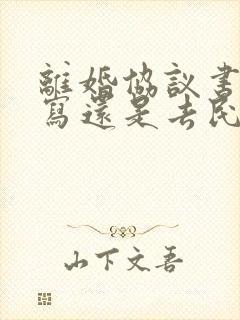 離婚協議書
寫還是去民
山下文吾